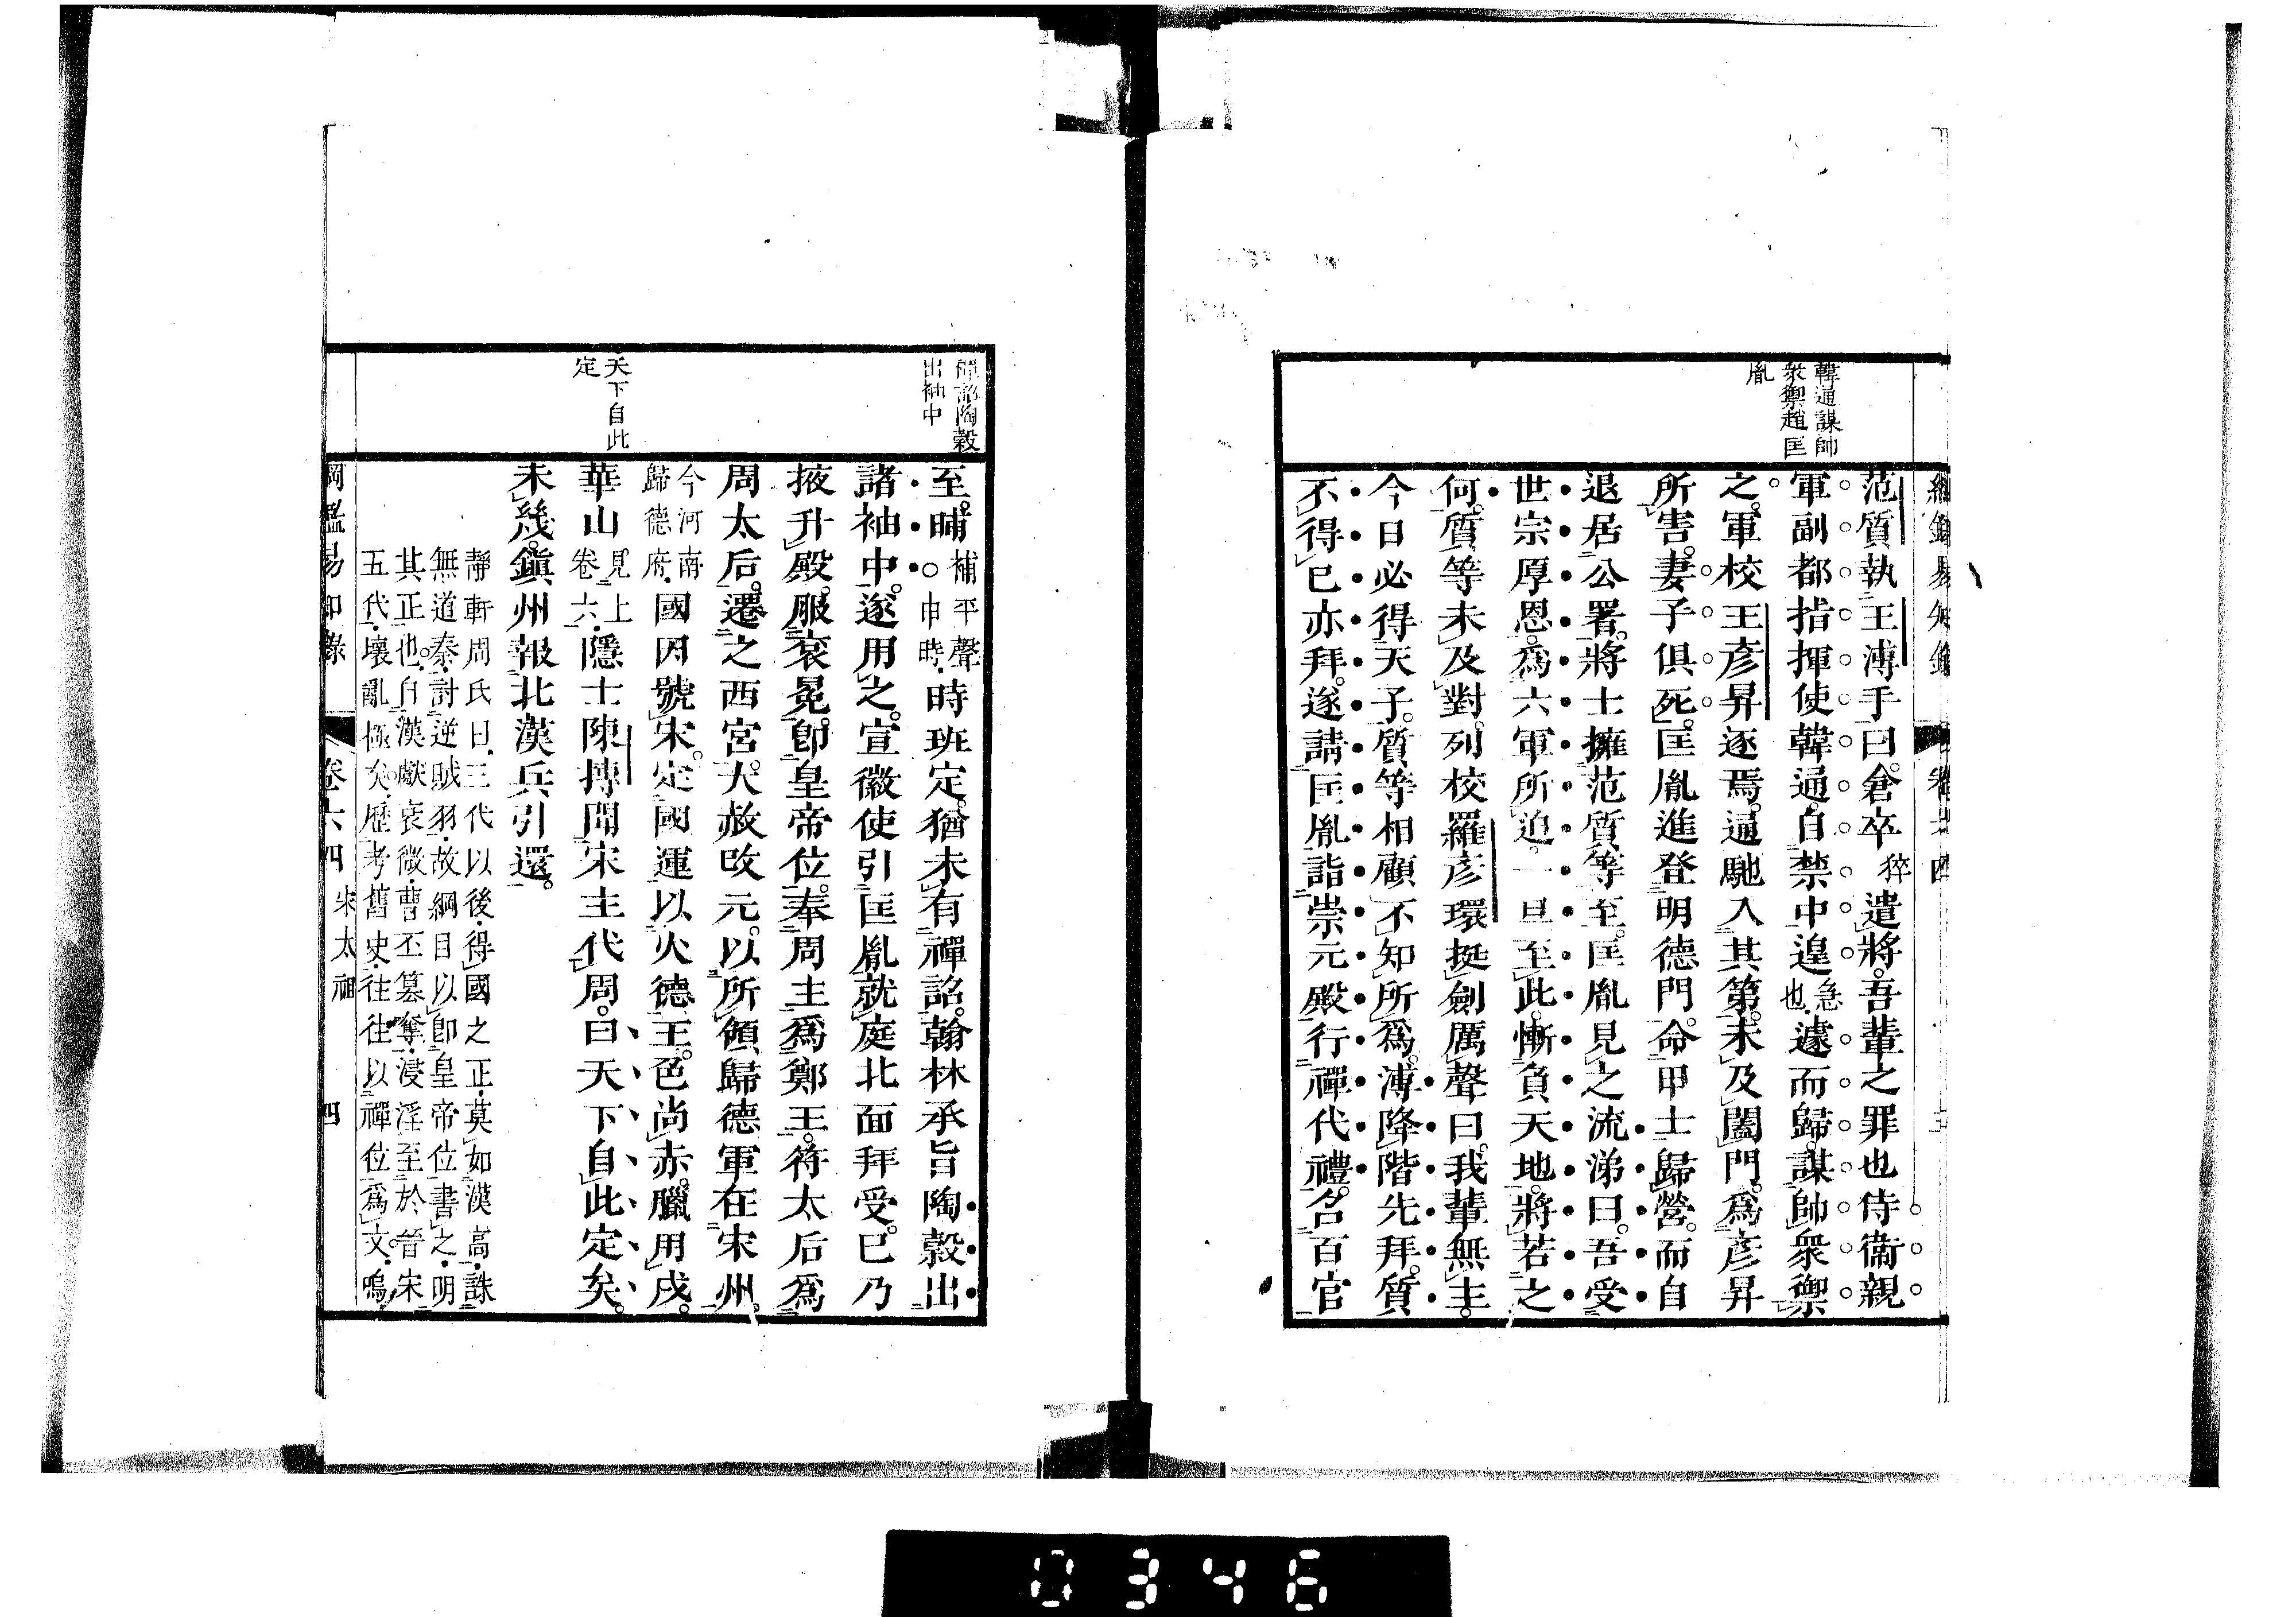 綱鑑易知錄 卷六四
韓通謀帥
衆禦趙匡
胤
范質執王溥手曰。倉卒猝遣將。吾輩之罪也侍衞親
軍副都指揮使韓通。自禁中遑急也遽而歸。謀帥衆禦
之。軍校王彥昇逐焉。通馳入其第。未及闔門。爲彥昇
所害。妻子俱死。匡胤進登明德門。命甲士歸營。而自
退居公署。將士擁范質等至。匡胤見之流涕曰。吾受
世宗厚恩。爲六軍所迫。一旦至此。慚負天地。將若之
何。質等未及對。列校羅彥環挺劍厲聲曰。我輩無主。
今日必得天子。質等相顧不知所爲。溥降階先拜。質
不得已亦拜。遂請匡胤詣崇元殿行禪代禮。召百官
禪詔陶穀
出袖中
天下自此
定
至。晡補平聲○申時時班定。猶未有禪詔。翰林承旨陶穀出
諸袖中。遂用之。宣徽使引匡胤就庭北面拜受。已乃
掖升殿。服袞冕。卽皇帝位。奉周主爲鄭王。符太后爲
周太后。遷之西宮。大赦改元。以所領歸德軍在宋州。
今河南歸德府國因號宋。定國運以火德王。色尚赤。臘用戌。
華山見上卷六隱士陳摶聞宋主代周。曰天下自此定矣。
未幾。鎭州報北漢兵引還。
靜軒周氏曰三代以後得國之正莫如漢高誅
無道秦討逆賊羽故綱目以卽皇帝位書之明
其正也自漢獻衰微曹丕篡奪浸淫至於晉宋
五代壞亂極矣歷考舊史往往以禪位爲文嗚
綱鑑易知錄 卷六四 宋太祖 四
0346